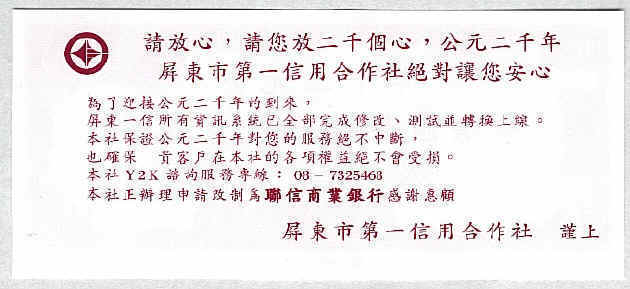 請放心，請您放二千個心，公元二千年
屏東市第一信用合作社絕對讓您安心
為了迎接公元二千年的到來，
屏東一信所有資訊系統已全部完成修改、測試並轉換上線。
本社保證公元二千年對您的服務絕不中斷，
也確保 貴客戶在本社的各項權益絕不會受損。
本社Y2K諮詢服務專線：08－7325463
本社正辦理申請改制為聯信商業銀行感謝惠顧
屏東市第一信用合作社 謹上